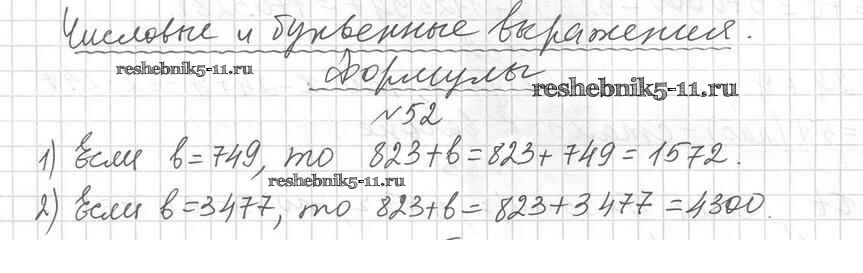 Числовые и буквенные выражения.
reshebnik5-11.ru
Формулы
reshebnik5-11.ru
№52
1) Если b=749, то 823+b=823+749=1572.
reshebnik5-11.ru
2) Если b=3477, то 823+b=823+3477=4300.